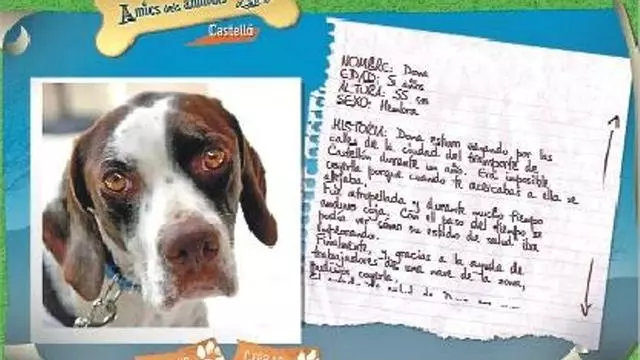 Amics dels animals
Castelló
NOMBRE: Dona
EDAD: 5 años
ALTURA: 55 cm
SEXO: Hembra
HISTORIA: Dona estuvo vagando por las
calles de la ciudad del transporte de
Castellón durante un año. Era imposible
cogerla porque cuando te acercabas a ella se
alejaba.
Fue atropellada y durante mucho tiempo
anduvo coja. Con el paso del tiempo se
podía ver como su estado de salud iba
empeorando.
Finalmente, y gracias a la ayuda de
trabajadores de una nave de la zona,
pudimos cogerla.
El estado de salud de